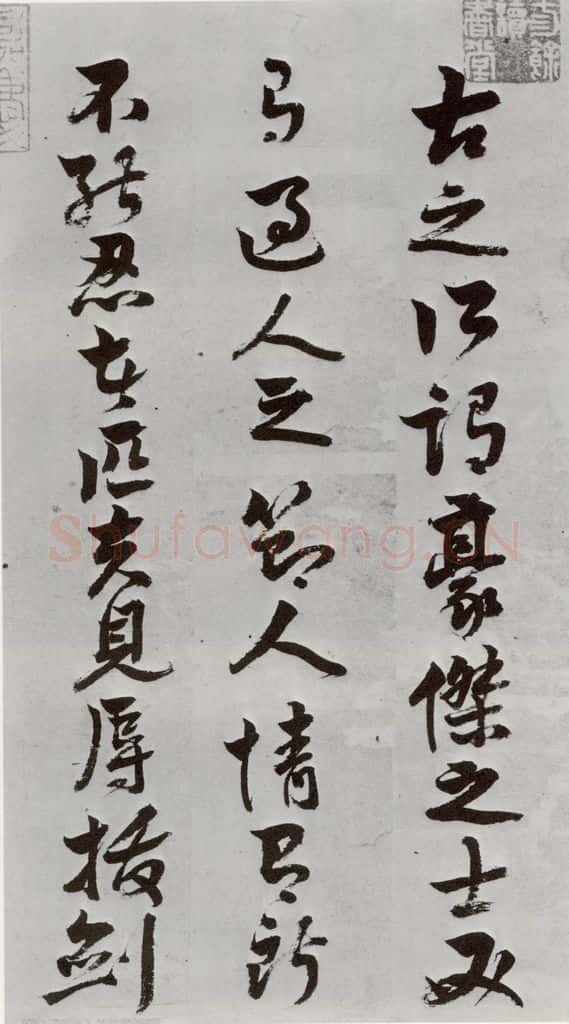 古之所謂豪傑之士必
有過人之節人情有所
不能忍者匹夫見辱拔劍
Shufawang.CN